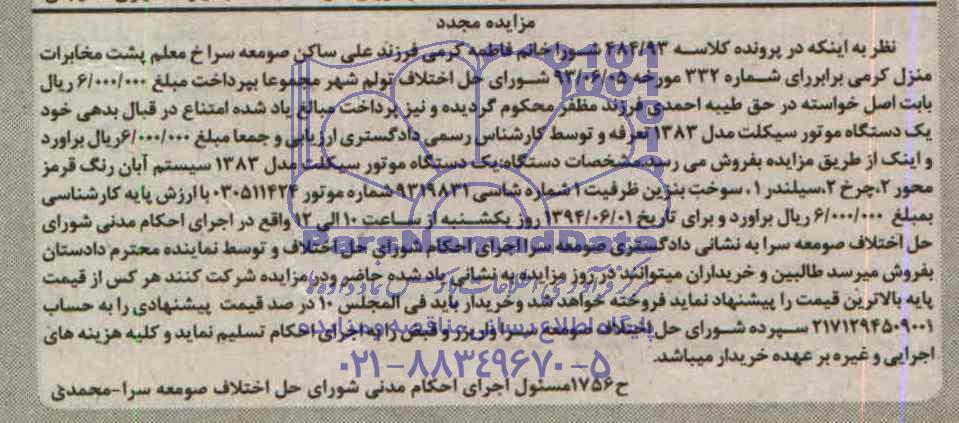 مزایده مجدد
نظر به اینکه در پرونده کلاسه ۴۸۴/۹۳ شورا خانم فاطمه کرمی فرزند علی ساکن صومعه سرا خ معلم پشت مخابرات
منزل کرمی برابررای شماره ۳۳۲ مورخه ۹۳/۰۶/۰۵ شورای حل اختلاف تولم شهر مجموعا بپرداخت مبلغ ۶/۰۰۰/۰۰۰ ریال
بابت اصل خواسته در حق طیبه احمدی فرزند مظفر محکوم گردیده و نیز پرداخت مبالغ یاد شده امتناع در قبال بدهی خود
یک دستگاه موتور سیکلت مدل ۱۳۸۳ تعرفه و توسط کارشناس رسمی دادگستری ارزیابی و جمعا مبلغ ۶/۰۰۰/۰۰۰ریال براورد
و اینک از طریق مزایده بفروش می رسد.مشخصات دستگاه:یک دستگاه موتور سیکلت مدل ۱۳۸۳ سیستم آبان رنگ قرمز
محور ۲،چرخ ۲،سیلندر ۱، سوخت بنزین ظرفیت ۱ شماره شاسی ۹۳۱۹۸۳۱ شماره موتور ۰۳۰۵۱۱۴۲۴ با ارزش پایه کارشناسی
بمبلغ ۶/۰۰۰/۰۰۰ ریال براورد و برای تاریخ ۱۳۹۴/۰۶/۰۱ روز یکشنبه از ساعت ۱۰ الی ۱۲ واقع در اجرای احکام مدنی شورای
حل اختلاف صومعه سرا به نشانی دادگستری صومعه سرا اجرای احکام شورای حل اختلاف و توسط نماینده محترم دادستان
بفروش میرسد طالبین و خریداران میتوانند در روز مزایده به نشانی یاد شده حاضر ودر مزایده شرکت کنند هر کس از قیمت
پایه بالاترین قیمت را پیشنهاد نماید فروخته خواهد شد وخریدار باید فی المجلس ۱۰ در صد قیمت پیشنهادی را به حساب
۲۱۷۱۲۹۴۵۰۹۰۰۱ سپرده شورای حل اختلاف صومعه سرا واریز و قبض را به اجرای احکام تسلیم نماید و کلیه هزینه های
اجرایی و غیره بر عهده خریدار میباشد.
ح۱۷۵۶مسئول اجرای احکام مدنی شورای حل اختلاف صومعه سرا-محمدی
ParsNamadData
پایگاه اطلاع رسانی مناقصه و مزایده
۰۲۱-۸۸۳۴۹۶۷۰-۵